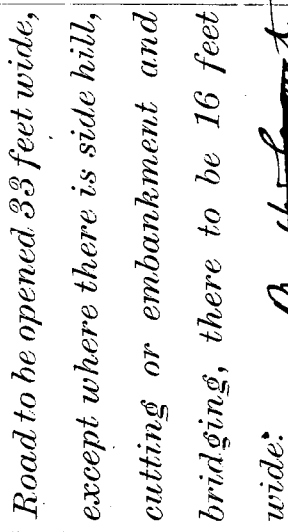 Road to be opened 33 feet wide,
except where there is side hill,
cutting or embankment and
bridging, there to be 16 feet
wide.